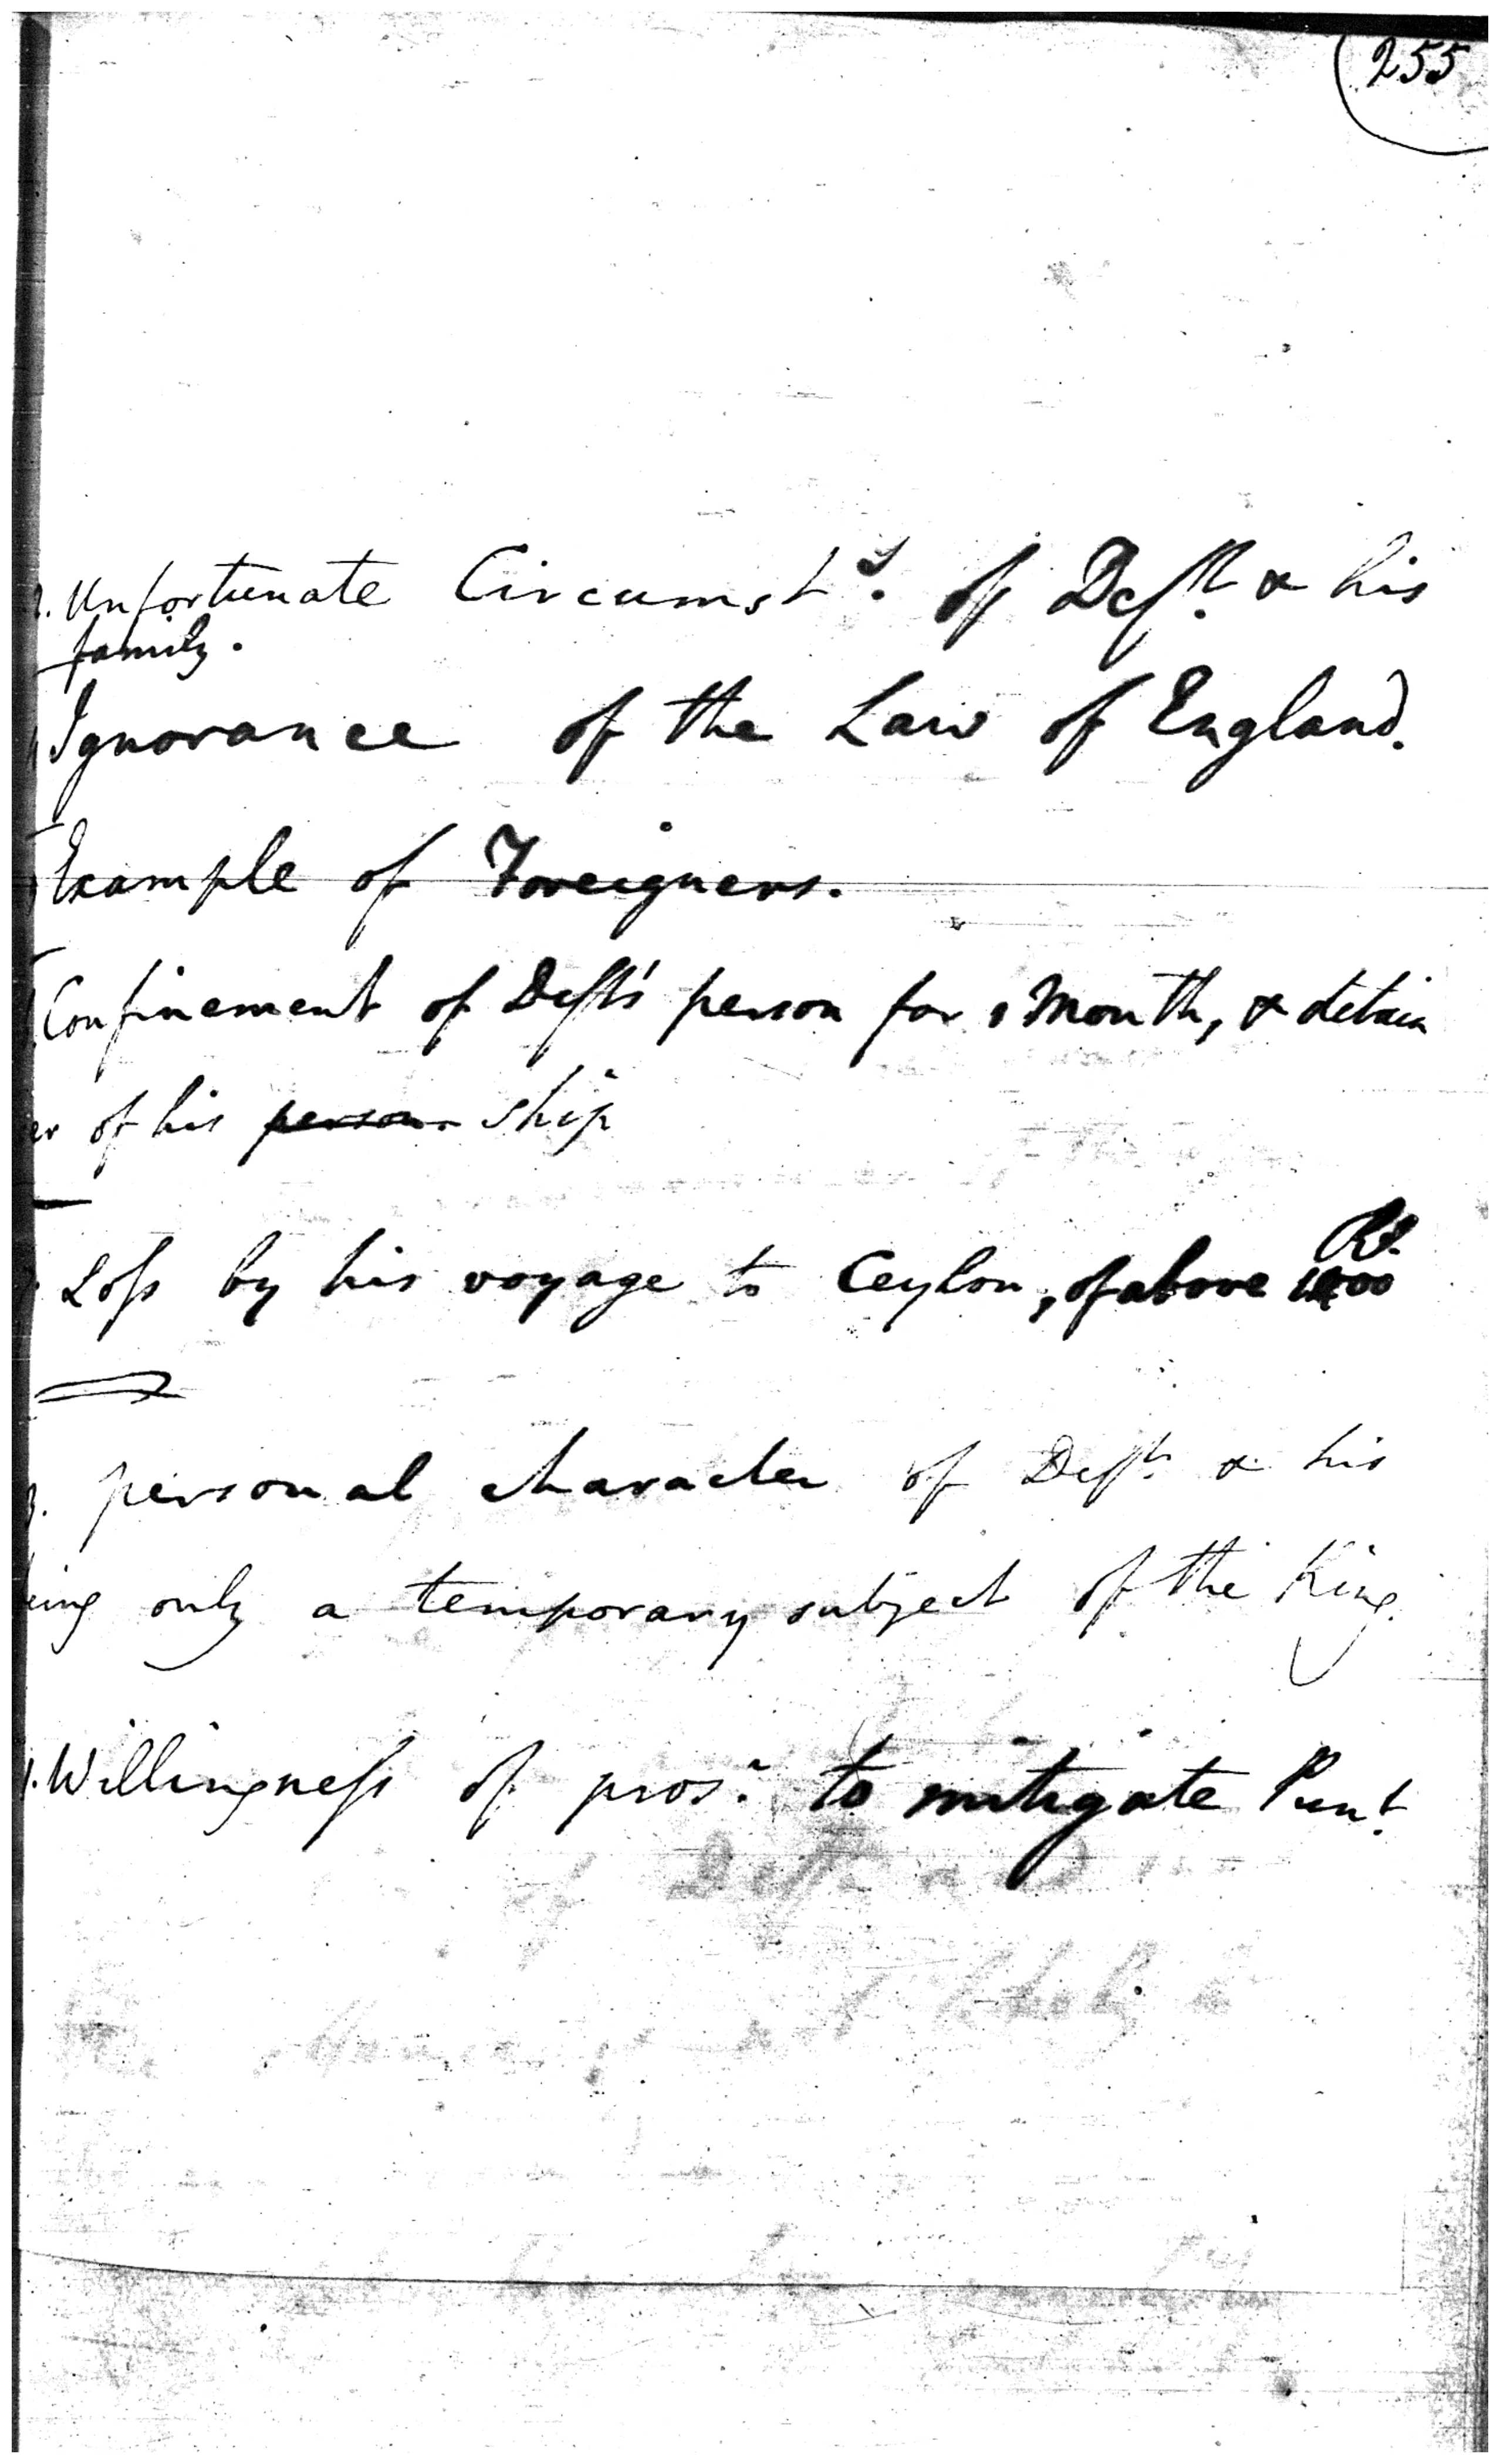 255
Unfortunate Circumsts. of Deft. & his
family.
Ignorance of the Law of England.
Example of Foreigners.
Confinement of Deft's person for 1 Month, & detain
er of his person ship
Loſs by his voyage to Ceylon, of above Rs.
personal character of Deft. & his
eing only a temporary subject of the King.
Willingneſs of prosr. to mitigate Punt.